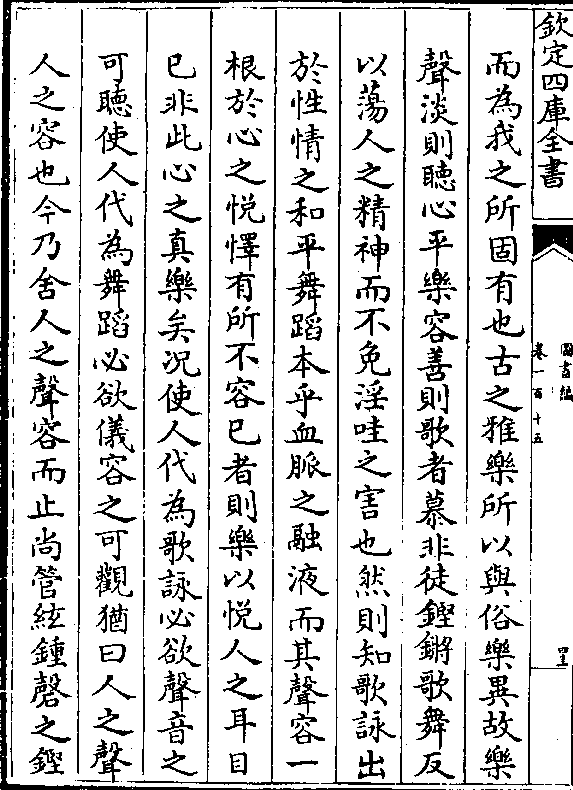 欽定四庫全書
圖書編
卷一百十五
而為我之所固有也古之雅樂所以與俗樂異故樂
聲淡則聽心平樂容善則歌者慕非徒鏗鏘歌舞反
以蕩人之精神而不免淫哇之害也然則知歌詠出
於性情之和平舞蹈本乎血脈之融液而其聲容一
根於心之悅懌有所不容已者則樂以悅人之耳目
已非此心之真樂矣況使人代為歌詠必欲聲音之
可聽使人代為舞蹈必欲儀容之可觀猶曰人之聲
人之容也今乃舍人之聲容而止尚管絃鍾磬之鏗